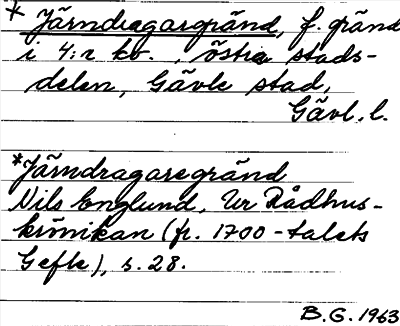 * Järndragargränd, f. gränd
i 4:r kv. , östra stads-
delen, Gävle stad,
Gävl. l.
*Järndragaregränd
Nils Englund, Ur Rådhus-
krönikan (fr. 1700-talets
Gefle), s. 28.
B. G. 1963